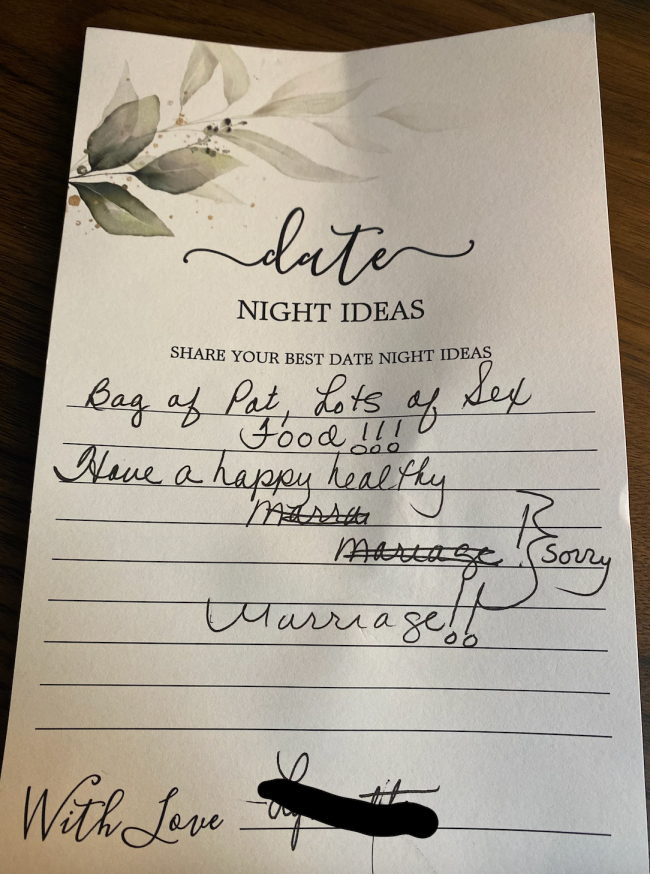 date
NIGHT IDEAS
SHARE YOUR BEST DATE NIGHT IDEAS
Bag of Pot, Lots of Sex
Food!!!
Have a happy healthy
Marra
Mariage
Sorry
Marriage!!
With Love